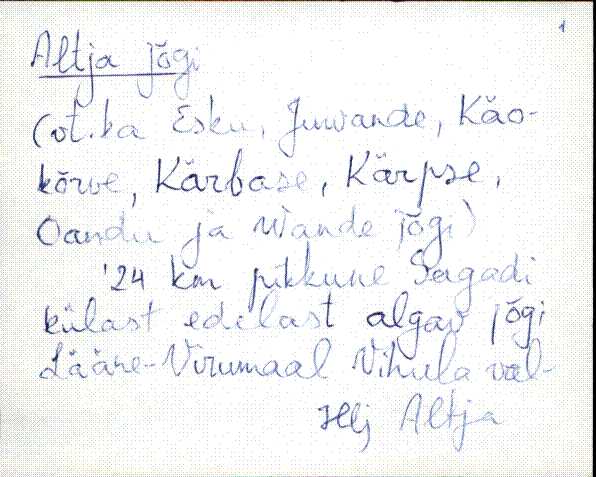 1
Altja jõgi
(vt. ka Esku, Juvande, Käo-
kõrve, Kärbase, Kärpse,
Oandu ja Viande jõgi)
'24 km pikkune Sagadi
külast edelast algav jõgi
Lääne-Virumaal Vihula val-
Hlj Altja